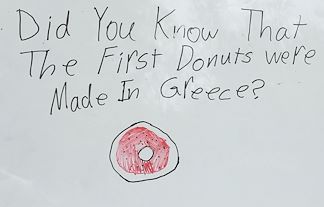 Did You Know That
The First Donuts were
Made In Greece?